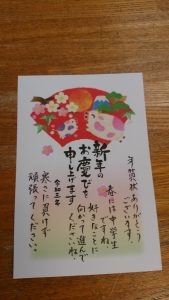 年賀状ありがとう
ございます。
春には中学生
ですね。
好きなことに
向かって進んで
くださいね
新年の
お慶びを
申し上げます
令和三年
寒さに負けず
頑張ってください。